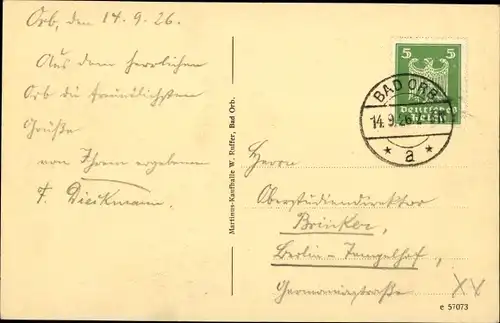 Orb, den 14.9.26.
Aus dem herrlichen
Orb die freundlichsten
Grüße
von Ihrem ergebenen
F. Dieckmann.
Martinus-Kaufhalle W. Ruffer, Bad Orb.
5 5
Deutsches
Reich
BAD ORB
14.9.26
* a *
Herrn
Oberstudiendirektor
Brinker,
Berlin-Tempelhof,
Germaniastraße
XX
e 57073